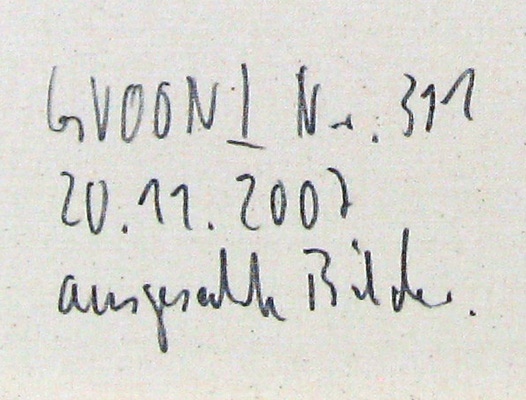 GVOON I Nr. 311
20.11.2007
Bilder.